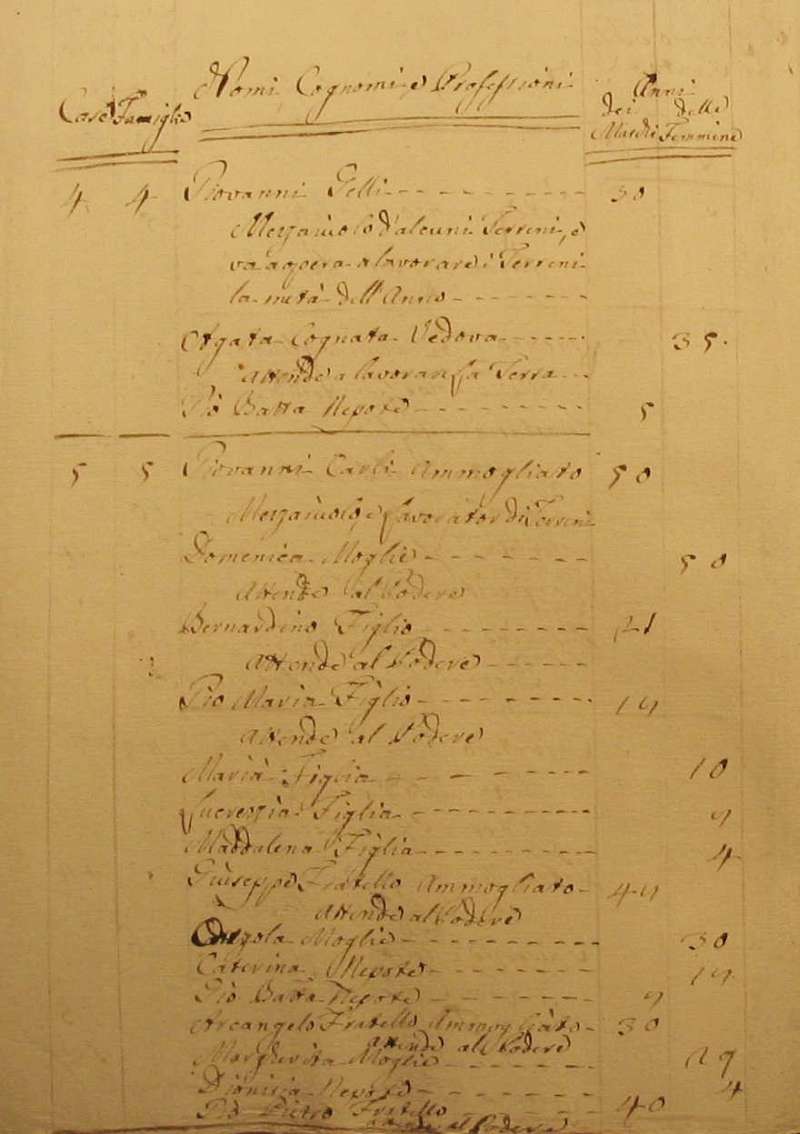 Case Famiglie Nomi Cognomi, e Professioni Anni
dei delle
Maschi Femmine
4 4 Giovanni Gelli 30
Mezzaiuolo d'alcuni Terreni, e
va a opera a lavorare i Terreni
la metà dell'Anno
Agata Cognata Vedova 35.
Attende a lavorar la Terra
Gio Batta Nepote 5
5 5 Giovanni Carli Ammogliato 50
Mezzaiuolo, e lavorator di Terreni
Domenica Moglie 50
Attende al Podere
Bernardino Figlio 21
Attende al Podere
Gio Maria Figlio 14
Attende al Podere
Maria Figlia 10
Lucrezia Figlia
Maddalena Figlia 4
Giuseppe Fratello Ammogliato 44
Attende al Podere
Moglie 30
Caterina Nepote 14
Gio Batta Nepote
Arcangelo Fratello Ammogliato 30
Attende al Podere
Margherita Moglie
Dionisia Nepote 4
Gio Pietro Fratello 40
Attende al Podere